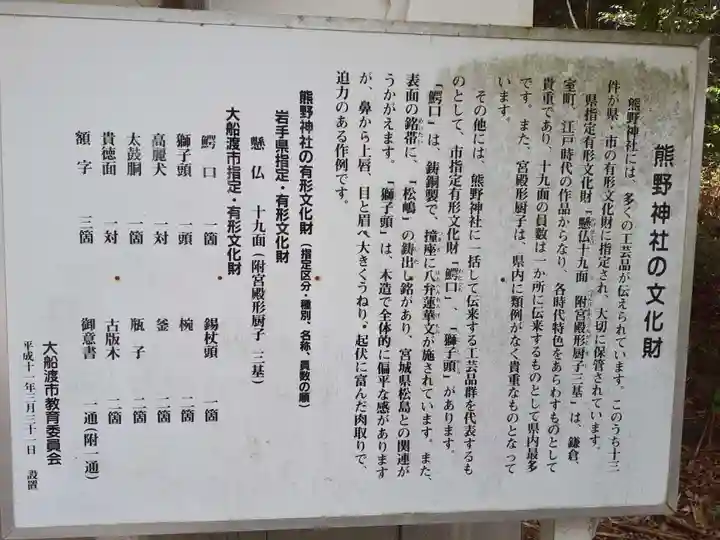 熊野神社の文化財
熊野神社には、多くの工芸品が伝えられています。このうち十三
件が県・市の有形文化財に指定され、大切に保管されています。
県指定有形文化財『懸仏十九面 附宮殿形厨子三基』は、鎌倉、
室町、江戸時代の作品からなり、各時代特色をあらわすものとして
貴重であり、十九面の員数は一か所に伝来するものとして県内最多
です。また、宮殿形厨子は、県内に類例がなく貴重なものとなって
います。
その他には、熊野神社に一括して伝来する工芸品群を代表するも
のとして、市指定有形文化財『鰐口』、『獅子頭』があります。
『鰐口』は、鋳銅製で、撞座に八弁蓮華文が施されています。また、
表面の銘帯に、『松嶋』の鋳出し銘があり、宮城県松島との関連が
うかがえます。『獅子頭』は、木造で全体的に偏平な感があります
が、鼻から上唇、目と眉へ大きくうねり・起伏に富んだ肉取りで、
迫力のある作例です。
熊野神社の有形文化財(指定区分・種別、名称、員数の順)
岩手県指定・有形文化財
懸仏 十九面(附宮殿形厨子 三基)
大船渡市指定・有形文化財
鰐口 一箇 錫杖頭 一箇
獅子頭 一頭 椀 一箇
高麗犬 一対 釜 二箇
太鼓胴 二箇 瓶子 二箇
貴徳面 一対 古版木 二箇
額字 三箇 御意書 一通(附一通)
大船渡市教育委員会
平成十一年三月三十一日 設置